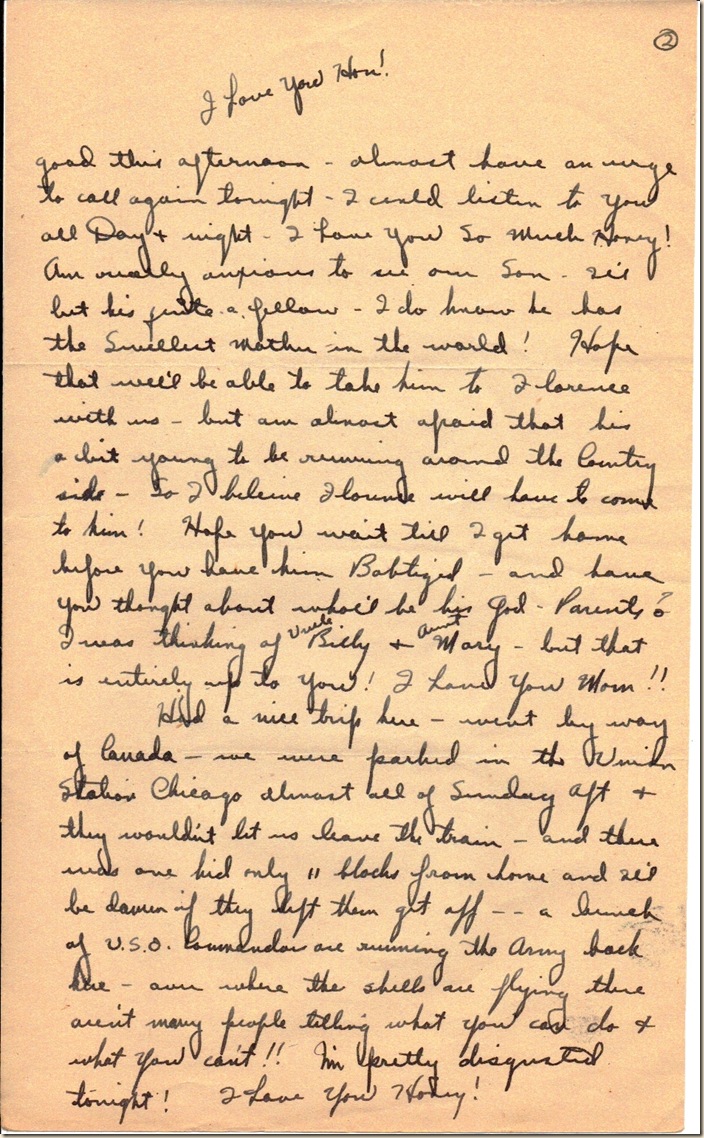 ②
I Love You Hon!
good this afternoon - almost have an urge
to call again tonight - I could listen to you
all Day & night - I Love You So Much Honey!
Am really anxious to see our Son - I'll
bet his quite a fellow - I do know he has
the Swellest Mother in the world! Hope
that we'll be able to take him to Florence
with us - but am almost afraid that his
a bit young to be running around the Country
side - So I beleive Florence will have to come
to him! Hope you wait till I get home
before you have him Babtized - and have
you thought about who'll be his God-Parents?
I was thinking of Uncle Billy & Aunt Mary - but that
is entirely up to You! I Love You Mom!!
Had a nice trip here - went by way
of Canada - we were parked in the Union
Station Chicago almost all of Sunday Aft &
they wouldn't let us leave the train - and there
was one kid only 11 blocks from home and I'll
be damn if they let them get off -- a bunch
of U.S.O. Commandos are running the Army back
here - over where the shells are flying there
aren't many people telling what you can do &
what you can't!! I'm pretty disgusted
tonight! I Love You Honey!